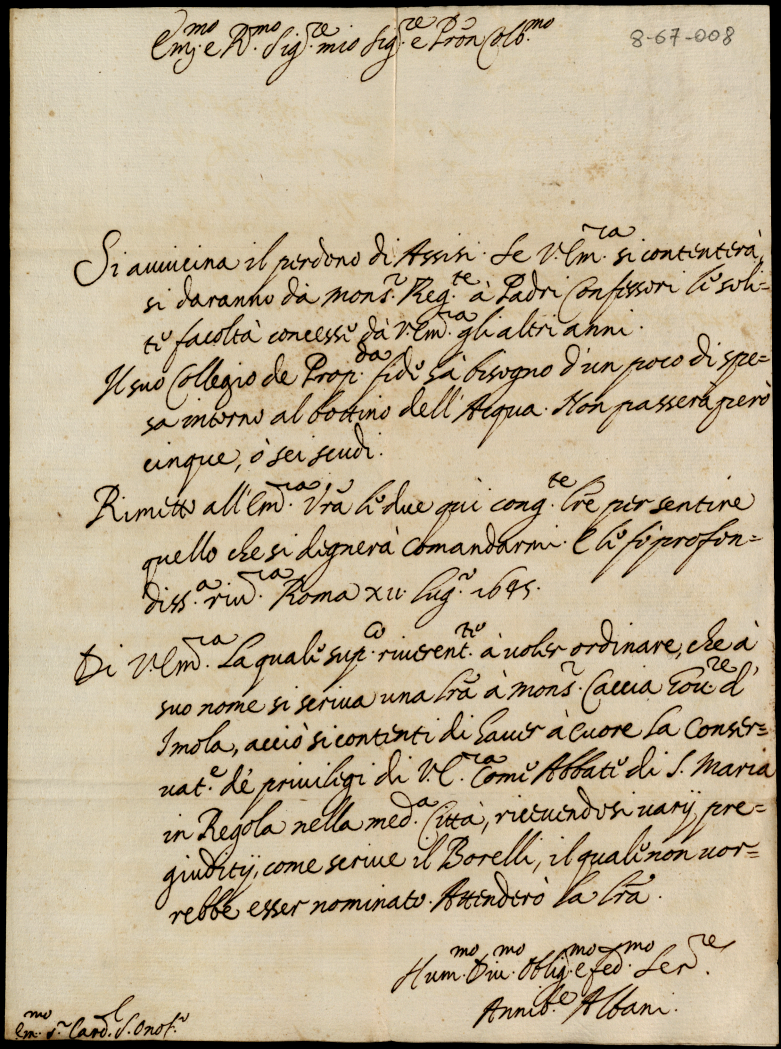 Em.mo e R.mo Sig.re mio Sig.re e Pron Col.mo
8-67-008
Si avvicina il perdono di Assisi. Se V. Em.za si contenterà,
si daranno da Mons.r Reg.te à Padri Confessori le soli-
te facoltà concesse da V. Em.za gli altri anni.
Il suo Collegio de Prop.da fide hà bisogno d'un poco di spe=
sa intorno al bottino dell'Acqua. Non passerà però
cinque, ò sei scudi.
Rimetto all'Em.za Vrã le due quì cong.te lrẽ per sentire
quello che si degnerà comandarmi. E le fò profon=
diss.a riu.za Roma XII lug.o 1645.
Di V. Em.za La quale sup.co riverent.te à voler ordinare, che à
suo nome si scriva una lrã à Mons.r Caccia Gov.re d'
Imola, acciò si contenti di haver à cuore la Conser=
vat.e dè privilegi di V. E.za Come Abbate di S. Maria
in Regola nella med.a Città, ricevendosi varij pre=
giuditij, come scrive il Borelli, il quale non vor=
rebbe esser nominato. Attenderò la lrã.
Hum.mo Div.mo Oblig.mo e fed.mo Ser.re
Annib.e Albani.
Em.mo S.r Card.l S. Onof.o